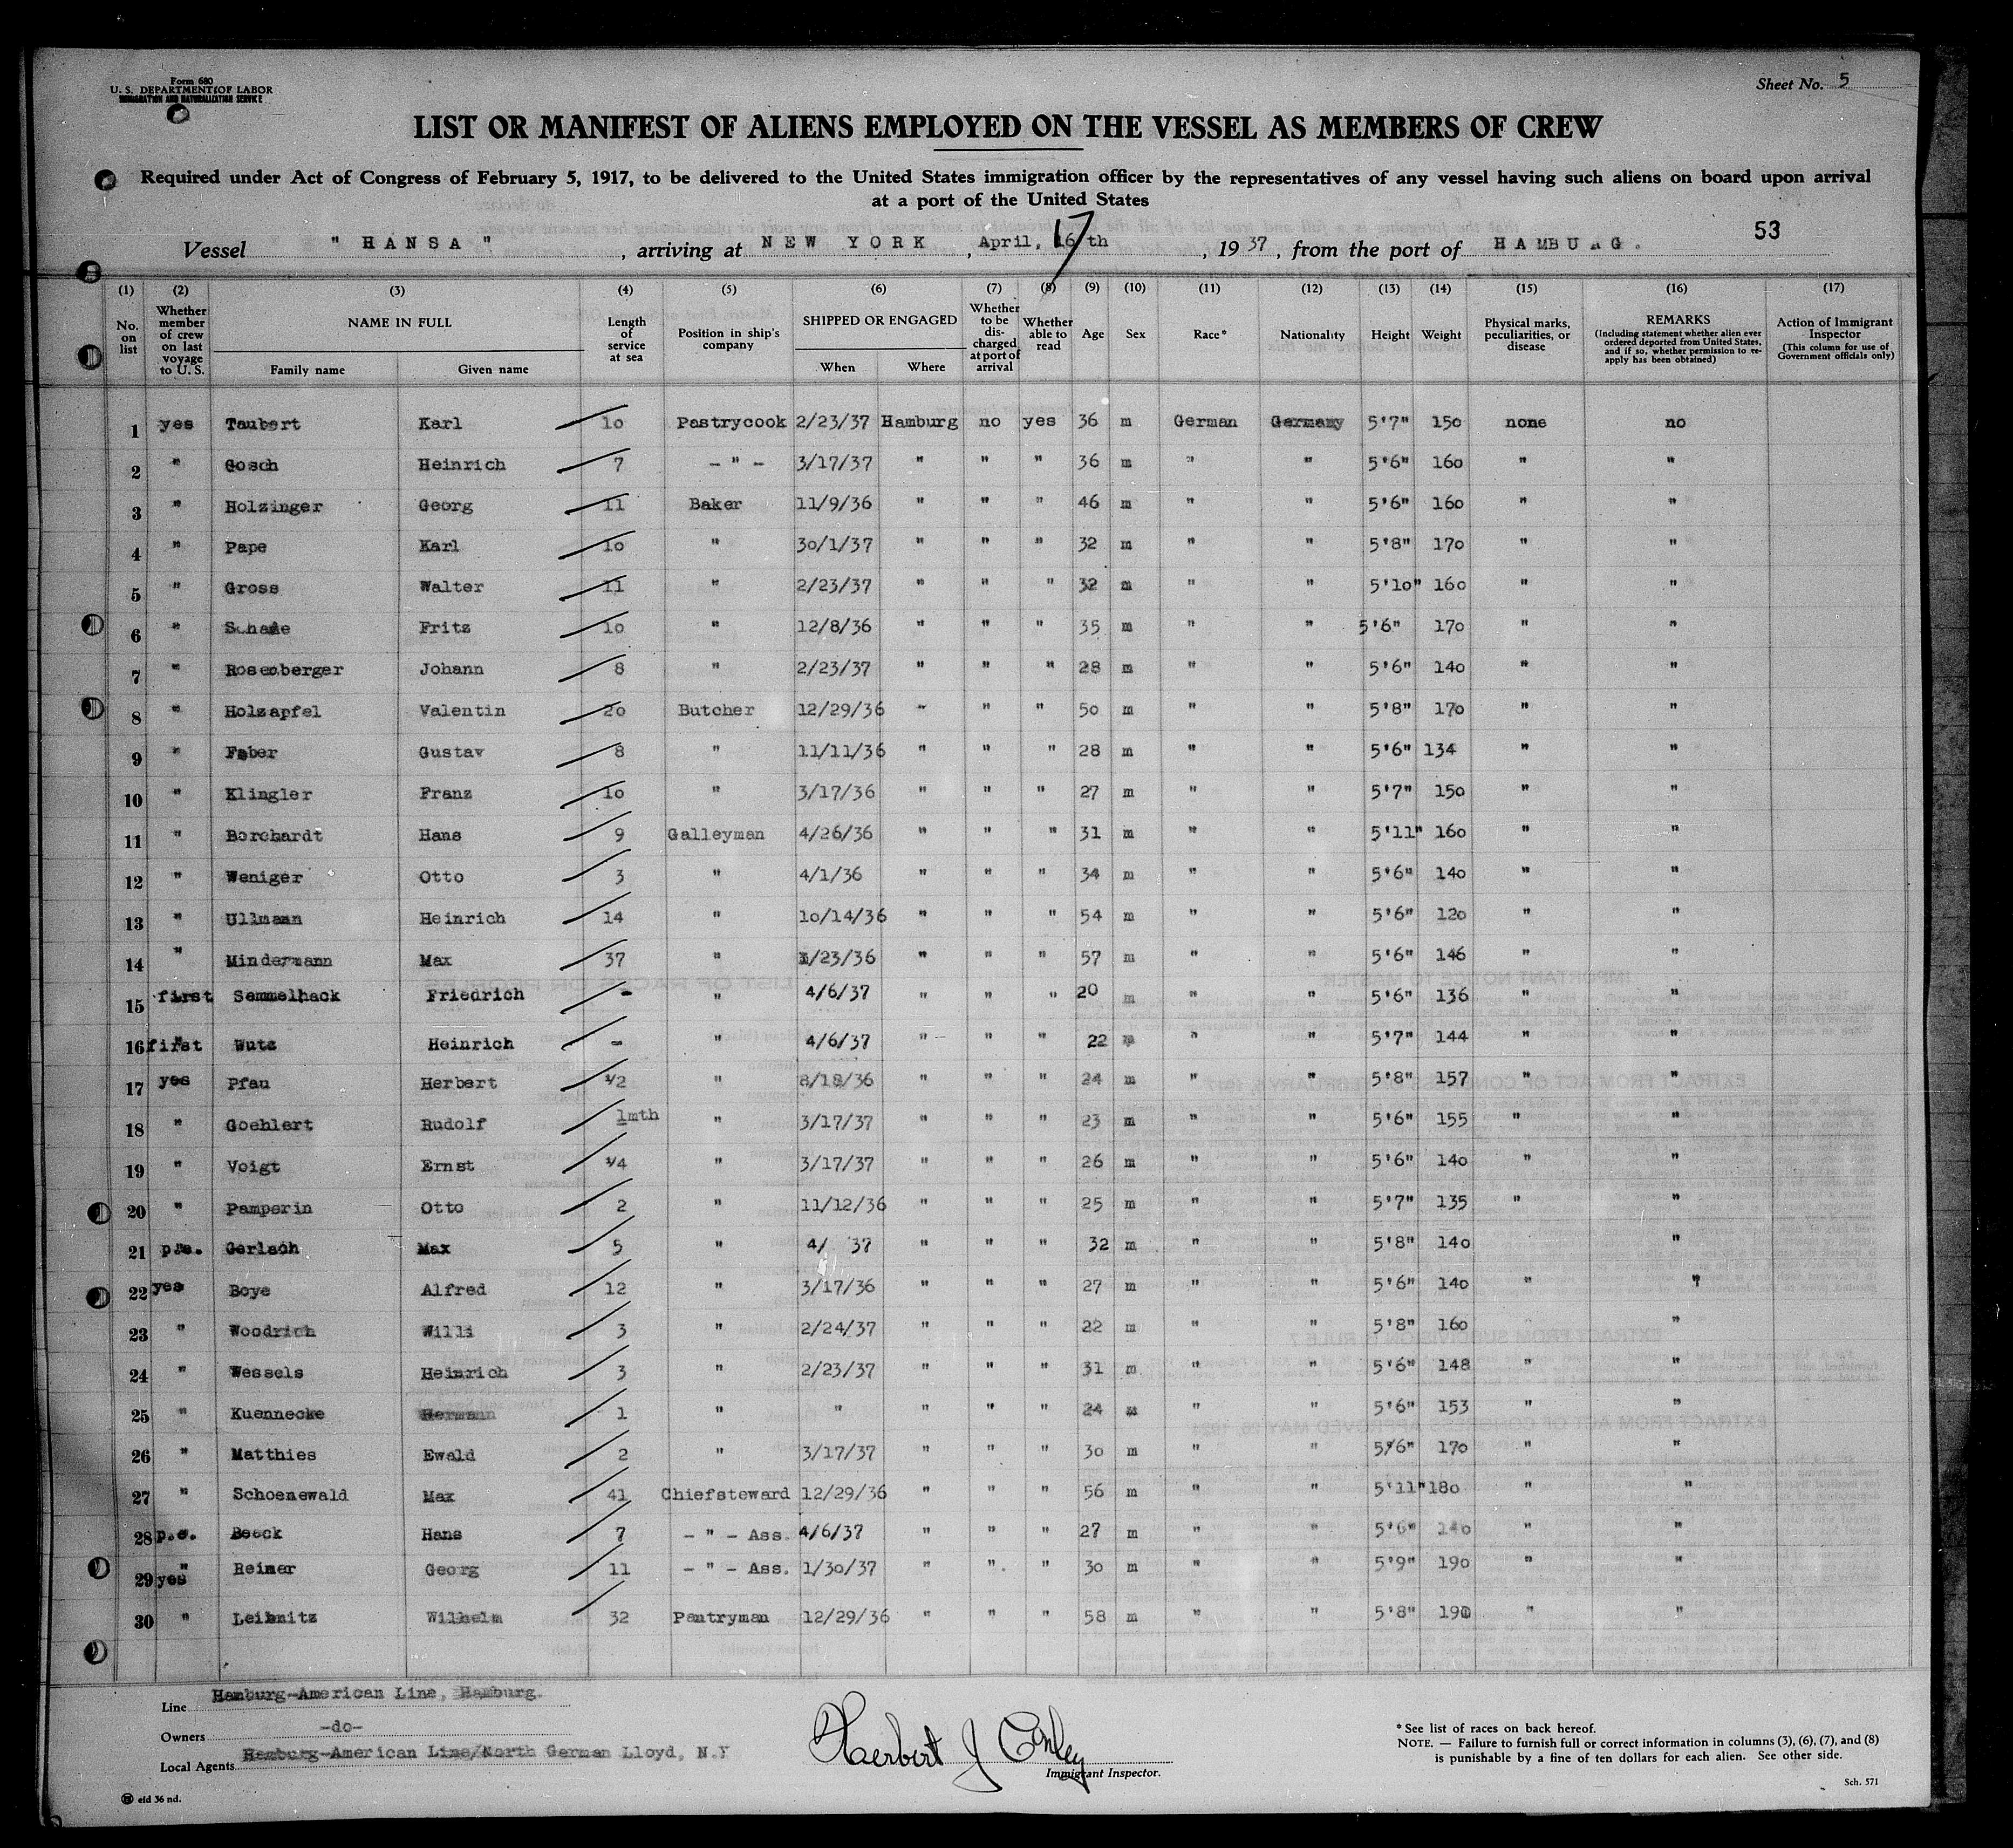 Form 680
U. S. DEPARTMENT OF LABOR
IMMIGRATION AND NATURALIZATION SERVICE
Sheet No. 5
LIST OR MANIFEST OF ALIENS EMPLOYED ON THE VESSEL AS MEMBERS OF CREW
Required under Act of Congress of February 5, 1917, to be delivered to the United States immigration officer by the representatives of any vessel having such aliens on board upon arrival
at a port of the United States
53
Vessel "HANSA", arriving at NEW YORK, April, 16th 17, 1937, from the port of HAMBURG.
(1) (2) (3) (4) (5) (6) (7) (8) (9) (10) (11) (12) (13) (14) (15) (16) (17)
No. on list Whether member of crew on last voyage to U. S. NAME IN FULL Family name Given name Length of service at sea Position in ship's company SHIPPED OR ENGAGED When Where Whether to be discharged at port of arrival Whether able to read Age Sex Race* Nationality Height Weight Physical marks, peculiarities, or disease REMARKS (Including statement whether alien ever ordered deported from United States, and if so, whether permission to reapply has been obtained) Action of Immigrant Inspector (This column for use of Government officials only)
1 yes Taubert Karl 10 Pastrycook 2/23/37 Hamburg no yes 36 m German Germany 5'7" 150 none no
2 " Gosch Heinrich 7 -"- 3/17/37 " " " 36 m " " 5'6" 160 " "
3 " Holzinger Georg 11 Baker 11/9/36 " " " 46 m " " 5'6" 160 " "
4 " Pape Karl 10 " 30/1/37 " " " 32 m " " 5'8" 170 " "
5 " Gross Walter 11 " 2/23/37 " " " 32 m " " 5'10" 160 " "
6 " Fritz 10 " 12/8/36 " " " 35 m " " 5'6" 170 " "
7 " Rosenberger Johann 8 " 2/23/37 " " " 28 m " " 5'6" 140 " "
8 " Holzapfel Valentin 20 Butcher 12/29/36 " " " 50 m " " 5'8" 170 " "
9 " Faber Gustav 8 " 11/11/36 " " " 28 m " " 5'6" 134 " "
10 " Klingler Franz 10 " 3/17/36 " " " 27 m " " 5'7" 150 " "
11 " Borchardt Hans 9 Galleyman 4/26/36 " " " 31 m " " 5'11" 160 " "
12 " Weniger Otto 3 " 4/1/36 " " " 34 m " " 5'6" 140 " "
13 " Ullmann Heinrich 14 " 10/14/36 " " " 54 m " " 5'6" 120 " "
14 " Mindermann Max 37 " 1/23/36 " " " 57 m " " 5'6" 146 " "
15 first Semmelhack Friedrich - " 4/6/37 " " " 20 m " " 5'6" 136 " "
16 first Wutz Heinrich - " 4/6/37 " " " 22 m " " 5'7" 144 " "
17 yes Pfau Herbert 1/2 " 8/18/36 " " " 24 m " " 5'8" 157 " "
18 " Goehlert Rudolf 1mth " 3/17/37 " " " 23 m " " 5'6" 155 " "
19 " Voigt Ernst 1/4 " 3/17/37 " " " 26 m " " 5'6" 140 " "
20 " Pamperin Otto 2 " 11/12/36 " " " 25 m " " 5'7" 135 " "
21 Gerlach Max 5 " 4/ 37 " " " 32 m " " 5'8" 140 "
22 yes Boye Alfred 12 " 3/17/36 " " " 27 m " " 5'6" 140 " "
23 " Woodrich Willi 3 " 2/24/37 " " " 22 m " " 5'8" 160 "
24 " Wessels Heinrich 3 " 2/23/37 " " " 31 m " " 5'6" 148 " "
25 " Kuennecke Hermann 1 " " " " " 24 m " " 5'6" 153 " "
26 " Matthies Ewald 2 " 3/17/37 " " " 30 m " " 5'6" 170 " "
27 " Schoenewald Max 41 Chiefsteward 12/29/36 " " " 56 m " " 5'11" 180 " "
28 Beeck Hans 7 -"- Ass. 4/6/37 " " " 27 m " " 5'6" 140 " "
29 " yes Reimer Georg 11 -"- Ass. 1/30/37 " " " 30 m " " 5'9" 190 " "
30 " Leibnitz Wilhelm 32 Pantryman 12/29/36 " " " 58 m " " 5'8" 190 " "
Line Hamburg-American Line, Hamburg.
Owners -do-
Local Agents Hamburg-American Line/North German Lloyd, N.Y
Herbert J Conley
Immigrant Inspector.
* See list of races on back hereof.
NOTE. — Failure to furnish full or correct information in columns (3), (6), (7), and (8)
is punishable by a fine of ten dollars for each alien. See other side.
Sch. 571
eid 36 nd.